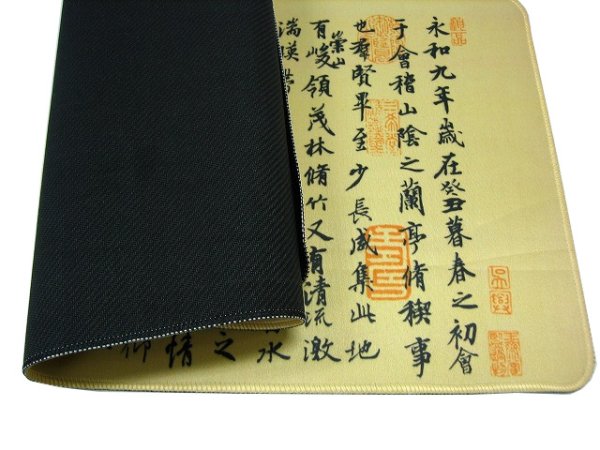 永和九年歲在癸丑暮春之初會
于會稽山陰之蘭亭脩稧事
也羣賢畢至少長咸集此地
有崇山峻領茂林脩竹又有清流激
湍暎帶
水
之
情
仰